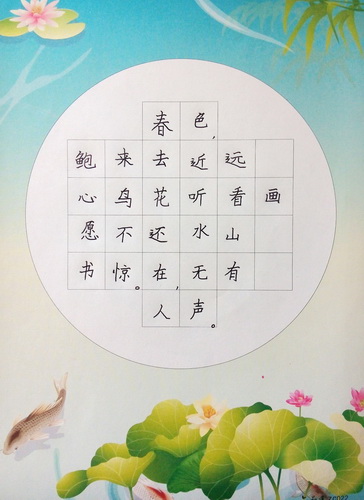 画
远看山有
色，近听水无声。
春去花还在，人
来鸟不惊。
鲍心愿书